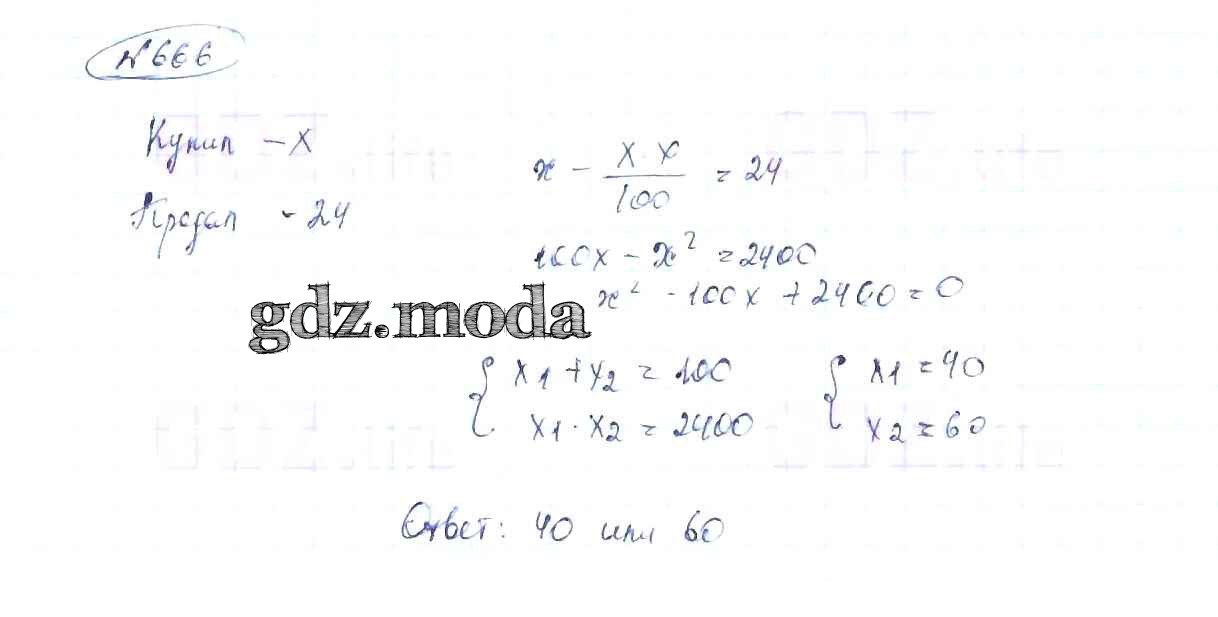 №666
Купил – x
Продал – 24
x - \frac{x \cdot x}{100} = 24
100x - x² = 2400
x² - 100x + 2400 = 0
gdz.moda
{ x1 + x2 = 100
x1 · x2 = 2400
{ x1 = 40
x2 = 60
Ответ: 40 или 60